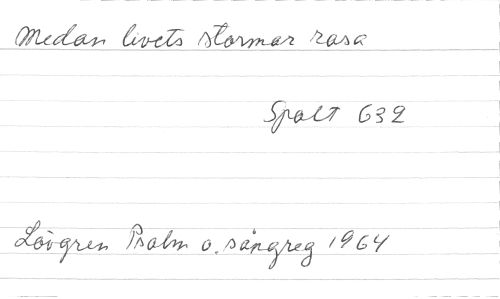 Medan livets stormar rasa
Spalt 632
Lövgren Psalm o. sångreg 1964